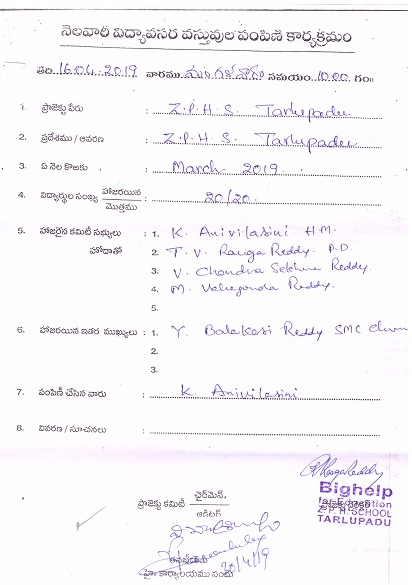 నెలవారీ విద్యావసర వస్తువుల పంపిణి కార్యక్రమం
తేది. 16.04.2019 వారము మంగళవారం సమయం. 10.00 గం॥
1. ప్రాజెక్టు పేరు : Z.P.H.S. Tarlupadu
2. ప్రదేశము / ఆవరణ : Z.P.H.S. Tarlupadu
3. ఏ నెల కొఱకు : March 2019
4. విద్యార్థుల సంఖ్య హాజరయిన / మొత్తము : 20/20.
5. హాజరైన కమిటీ సభ్యులు : 1. K. Anivilasini HM.
హోదాతో 2. T. V. Ranga Reddy. P.D.
3. V. Chandra Sekhra Reddy.
4. M. Reddy.
5.
6. హాజరయిన ఇతర ముఖ్యులు : 1. Y. Balakasi Reddy SMC
2.
3.
7. పంపిణీ చేసిన వారు : K. Anivilasini
8. వివరణ / సూచనలు :
RangaReddy
Bighelp
for Education
Z.P.H. SCHOOL
TARLUPADU
ప్రాజెక్టు కమిటీ ఛైర్మెన్,
ఆడిటర్
20/4/19